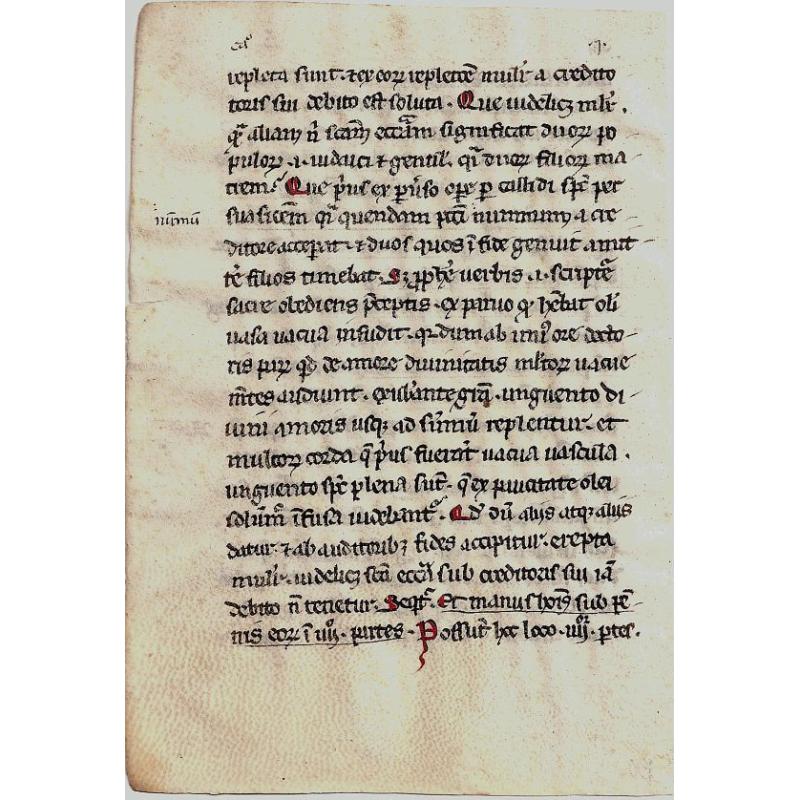 repleta sunt. ⁊ ex eoꝝ repletõe mulr̃ a credito
toris sui debito est soluta. Que uidelicꝫ mlr̃.
q̃ aliam ñ scãm eccl̃am significat duoꝝ po
puloꝝ .i. iudaici ⁊ gentil. q̃ duoꝝ filioꝝ ma
trem. Que p̃us ex puerso oꝑe ꝑ callidi sp̃c ꝑ
suasiõem q̃ quendam pcc̃i nummum a cre
nũmũ
ditore acceꝑat. ⁊ duos quos ĩ fide genuit amit
tẽ filios timebat. Sꝫ ꝓph̃e uerbis .i. scriptẽ
sacre obediens p̃ceptis. ex paruo qͦ hẽbat oli
uasa uacua infudit. q̃ dum ab unĩ ore docto
ris parꝝ qͥd de amore diuinitatis mltoꝝ uacue
mẽtes audiunt. exubante gr̃a. unguento di
uini amoris usqꝫ ad sũmũ replentur. et
multoꝝ corda q̃ p̃us fuerũt uacua uascula.
unguento sp̃c plena sũt. q̃ ex paucitate olei
solũm ĩfusa uidebant. Qd̃ dũ aliis atqꝫ aliis
datur. ⁊ ab auditoribꝫ fides accipitur. erepta
mulr̃. uidelicꝫ scã eccl̃a sub creditoris sui iã
debito ñ tenetur. Seqt̃. Et manus hoĩs sub pẽ
nis eoꝝ ĩ iiiiᵒʳ. partes. Possũt hoc loco .iiiiᵒʳ. ptes.